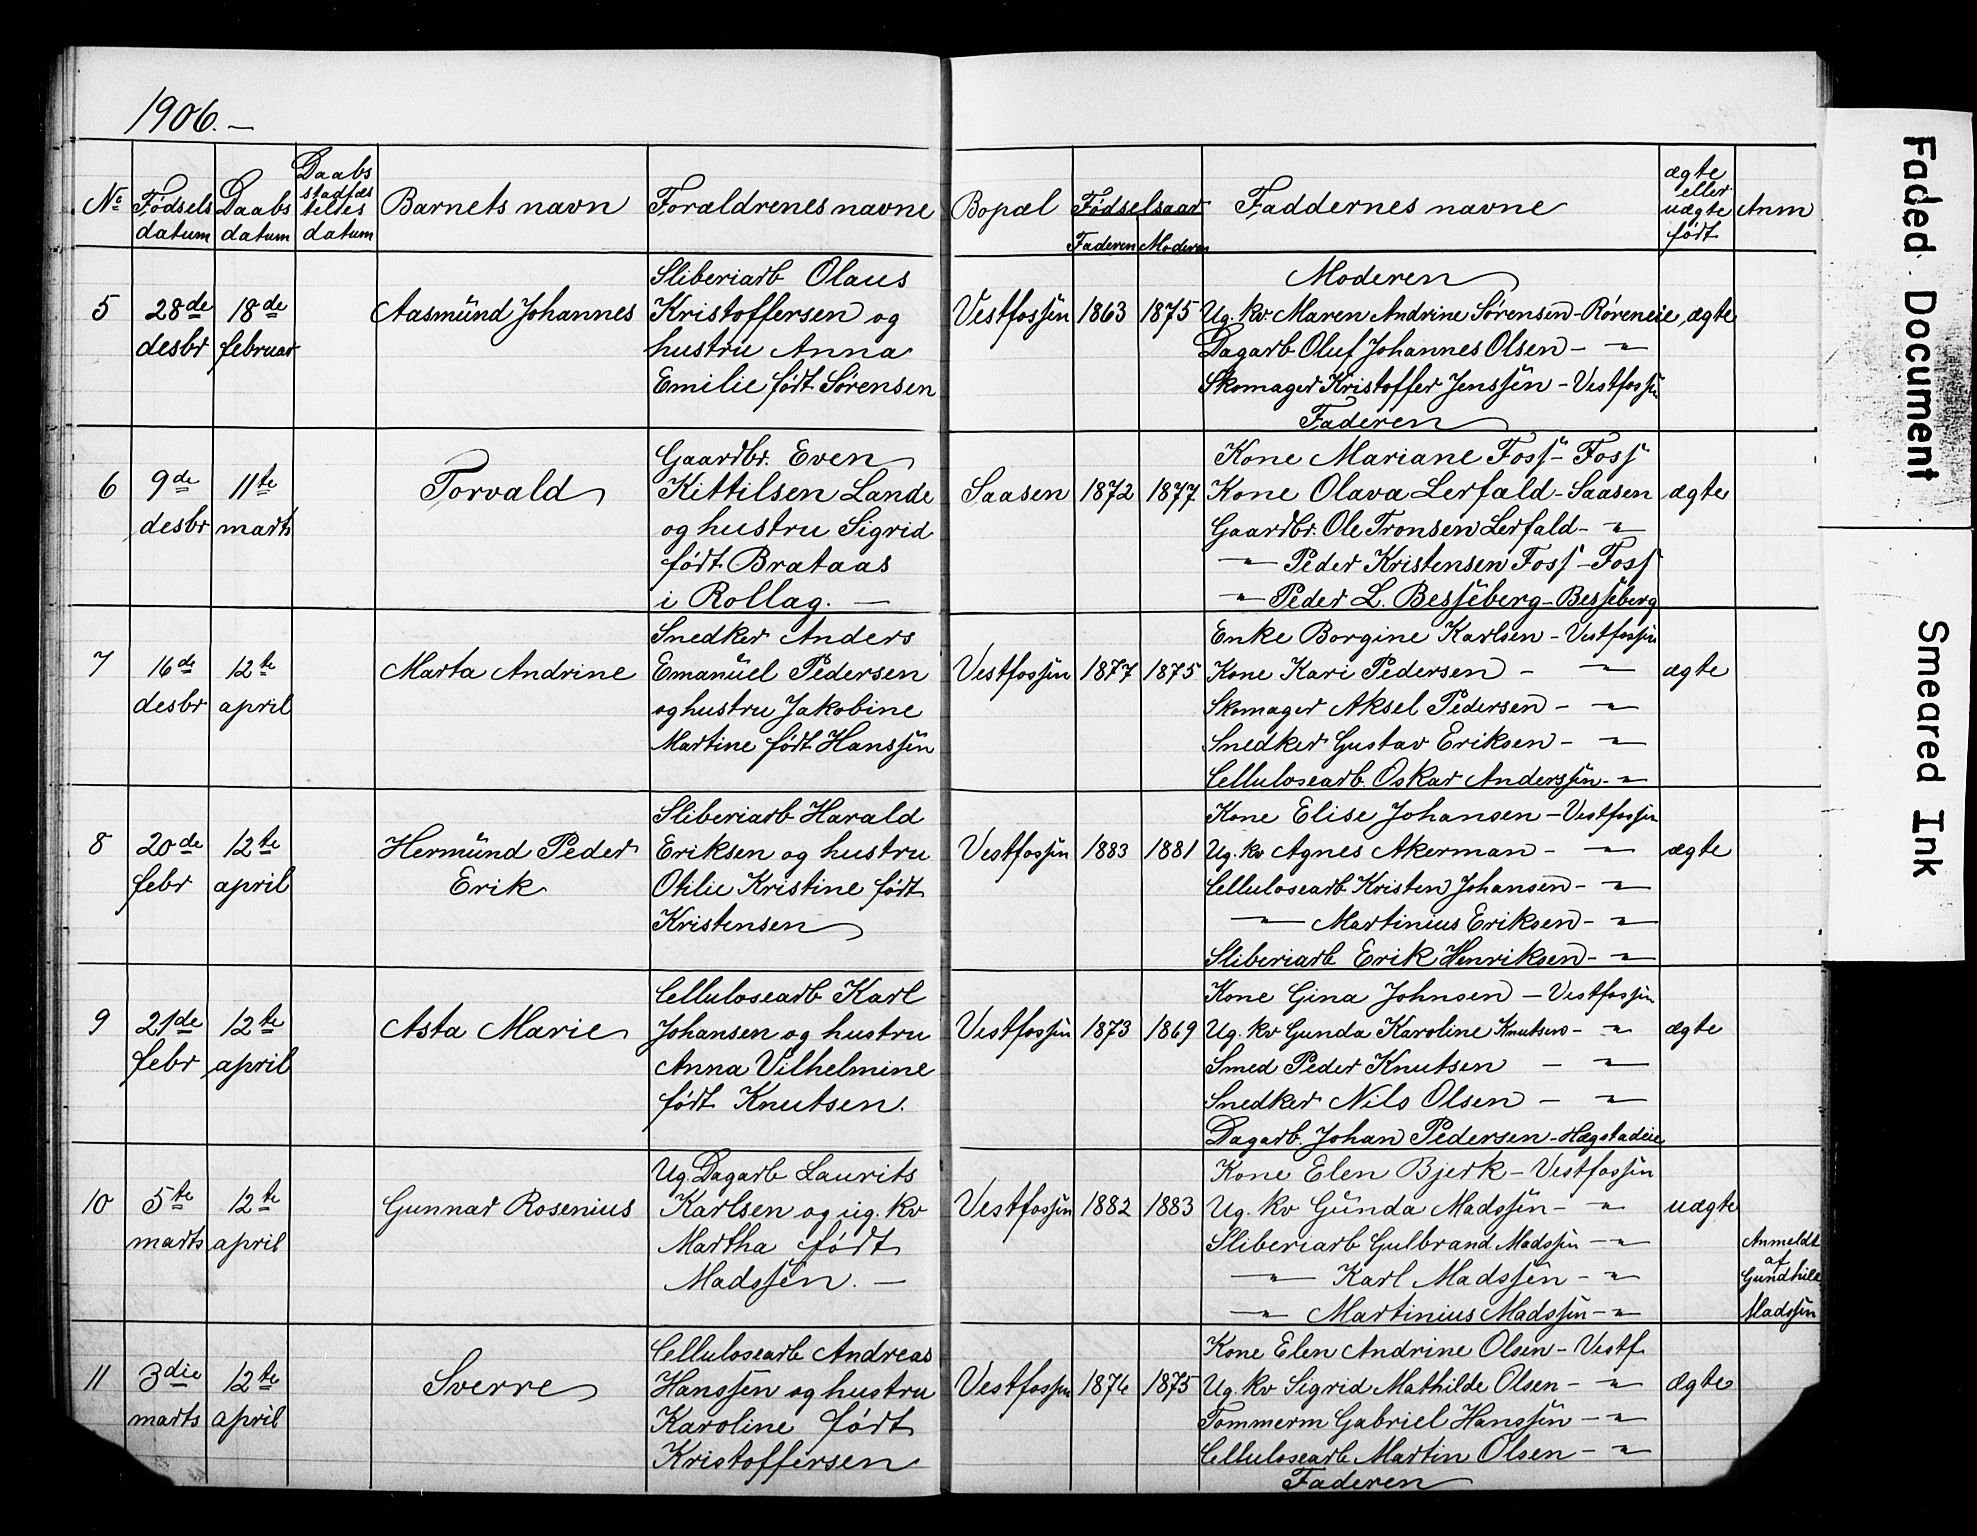 1906.—
No Fødsels datum Daabs datum Daabs stadfæs telses datum Barnets navn Foraldrenes navne Bopæl Fødselsaar Faderen Moderen Faddernes navne ægte eller uægte født Anm
Sliberiarb Olaus Moderen
5 28de 18de Aasmund Johannes Kristoffersen og Vestfossen 1863 1875 Ug. kv Maren Andrine Sørensen - Røreneie, ægte
desbr februar hustru Anna Dagarb Oluf Johannes Olsen - "
Emilie født Sørensen Skomager Kristoffer Jenssen - Vestfossen
Faderen
Gaardbr. Even Kone Mariane Foss - Foss
6 9de 11te Torvald Kittilsen Lande Saasen 1872 1877 Kone Olava Lerfald - Saasen ægte
desbr marts og hustru Sigrid Gaardbr. Ole Tronsen Lerfald - "
født Brataas " Peder Kristensen Foss - Foss
i Rollag. — " Peder L. Besseberg - Besseberg
Snedker Anders Enke Borgine Karlsen - Vestfossen
7 16de 12te Marta Andrine Emanuel Pedersen Vestfossen 1877 1875 Kone Kari Pedersen - " ægte
desbr april og hustru Jakobine Skomager Aksel Pedersen - "
Martine født Hanssen Snedker Gustav Eriksen - "
Cellulosearb. Oskar Anderssen - "
Sliberiarb Harald Kone Elise Johansen - Vestfossen
8 20de 12te Hermund Peder Eriksen og hustru Vestfossen 1883 1881 Ug. kv Agnes Akerman - " ægte
febr april Erik Otilie Kristine født Cellulosearb Kristen Johansen - "
Kristensen " Martinius Eriksen - "
Sliberiarb Erik Henriksen - "
Cellulosearb Karl Kone Gina Johnsen - Vestfossen
9 21de 12te Asta Marie Johansen og hustru Vestfossen 1873 1869 Ug. kv Gunda Karoline Knutsen - " ægte
febr april Anna Vilhelmine Smed Peder Knutsen - "
født Knutsen. Snedker Nils Olsen - "
Dagarb. Johan Pedersen - Hægstadeie
Ug. Dagarb Laurits Kone Elen Bjerk - Vestfossen
10 5te 12te Gunnar Rosenius Karlsen og ug. kv Vestfossen 1882 1883 Ug. kv Gunda Madssen - " uægte
marts april Martha født Sliberiarb Gulbrand Madssen - " Anmeldt
af
Madssen. — " Karl Madssen - " Gundhild
" Martinius Madssen - " Madssen
Cellulosearb Andreas Kone Elen Andrine Olsen - Vestf.
11 3die 12te Sverre Hanssen og hustru Vestfossen 1874 1875 Ug. kv Sigrid Mathilde Olsen - " ægte
marts april Karoline født Tømmerm Gabriel Hanssen - "
Kristoffersen Cellulosearb Martin Olsen - "
Faderen
Faded Document
Smeared Ink